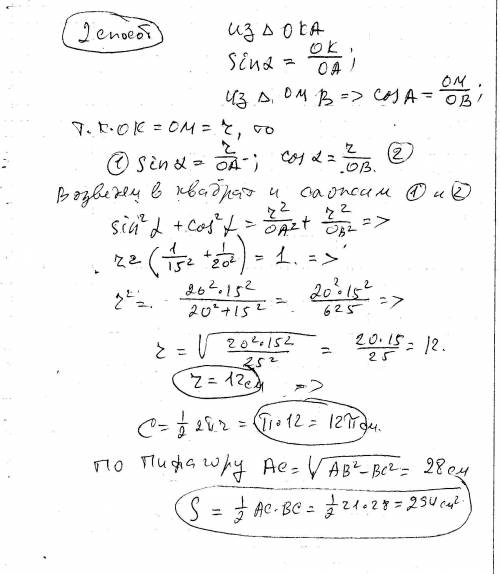 2 способ
из Δ OKA
sinα = OK/OA;
из Δ. OMB => cosA = OM/OB;
т.к. OK = OM = r, то
① sinα = r/OA; cosα = r/OB. ②
Возведем в квадрат и сложим ① и ②
sin²α + cos²α = r²/OA² + r²/OB² =>
r² (1/15² + 1/20²) = 1. =>
r² = 20²·15²/20²+15² = 20²·15²/625 =>
r = √20²·15²/25² = 20·15/25 = 12.
r = 12см =>
C = 1/2 2πr = π·12 = 12π см.
по Пифагору AC = √AB²-BC² = 28 см
S = 1/2 AC·BC = 1/2 21·28 = 294 см²